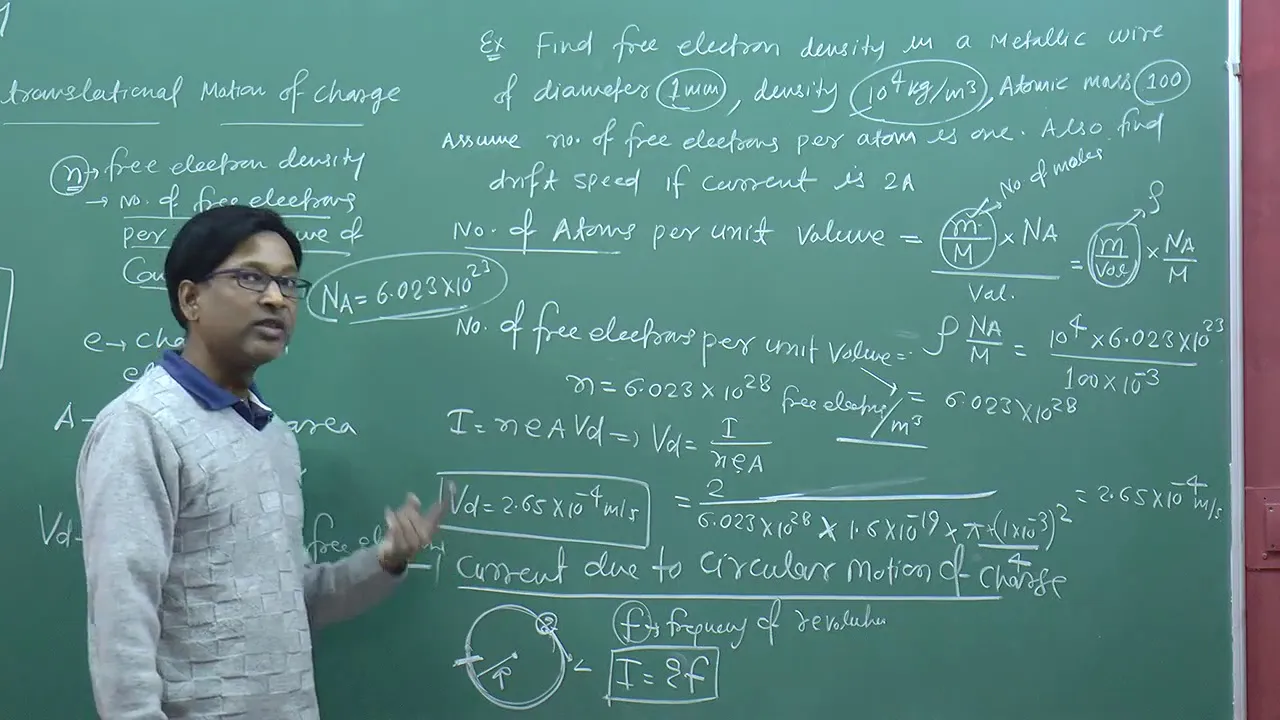 translational Motion of Charge
n → free electron density
→ No. of free electrons
per
e of
Con
NA = 6.023×10^23
e → Cha
el
A →
area
Vd
free elect
Ex Find free electron density in a Metallic wire
of diameter 1mm, density 10^4 kg/m^3, Atomic mass 100
Assume no. of free electrons per atom is one. Also find
drift speed if current is 2A
No. of moles
No. of Atoms per unit Volume = m/M × NA / Vol. = m/Vol × NA/M
ρ
No. of free electrons per unit Volume = ρ NA/M = 10^4 × 6.023×10^23 / 100×10^-3
n = 6.023×10^28 free electrons/m^3 = 6.023×10^28
I = neAVd ⇒ Vd = I/neA
Vd = 2.65×10^-4 m/s = 2 / 6.023×10^28 × 1.6×10^-19 × π (1×10^-3)^2/4 = 2.65×10^-4 m/s
Current due to Circular Motion of Charge
f → frequency of revolution
r
I = qf